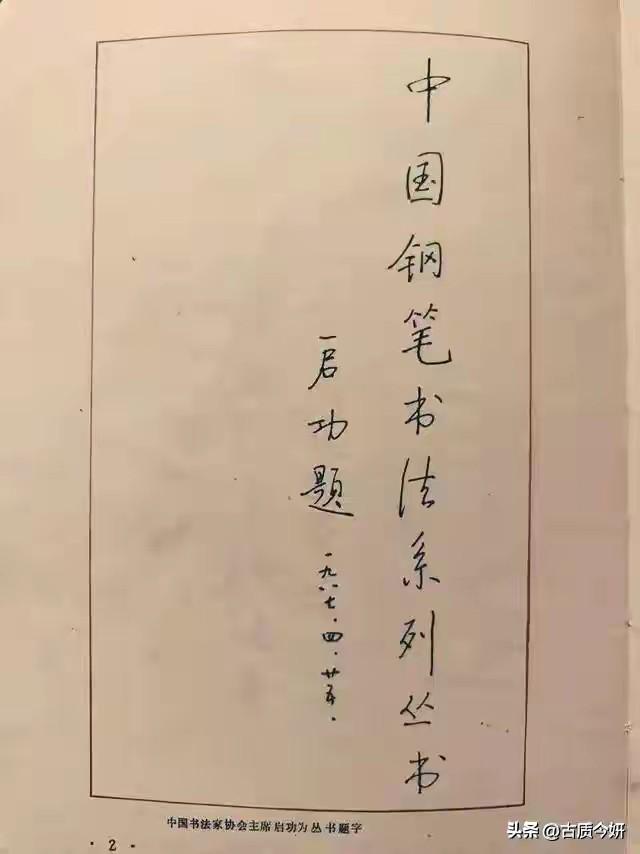 中国钢笔书法系列丛书
启功题
一九八七.四.廿五.
中国书法家协会主席启功为丛书题字
·2·
头条@古质今妍